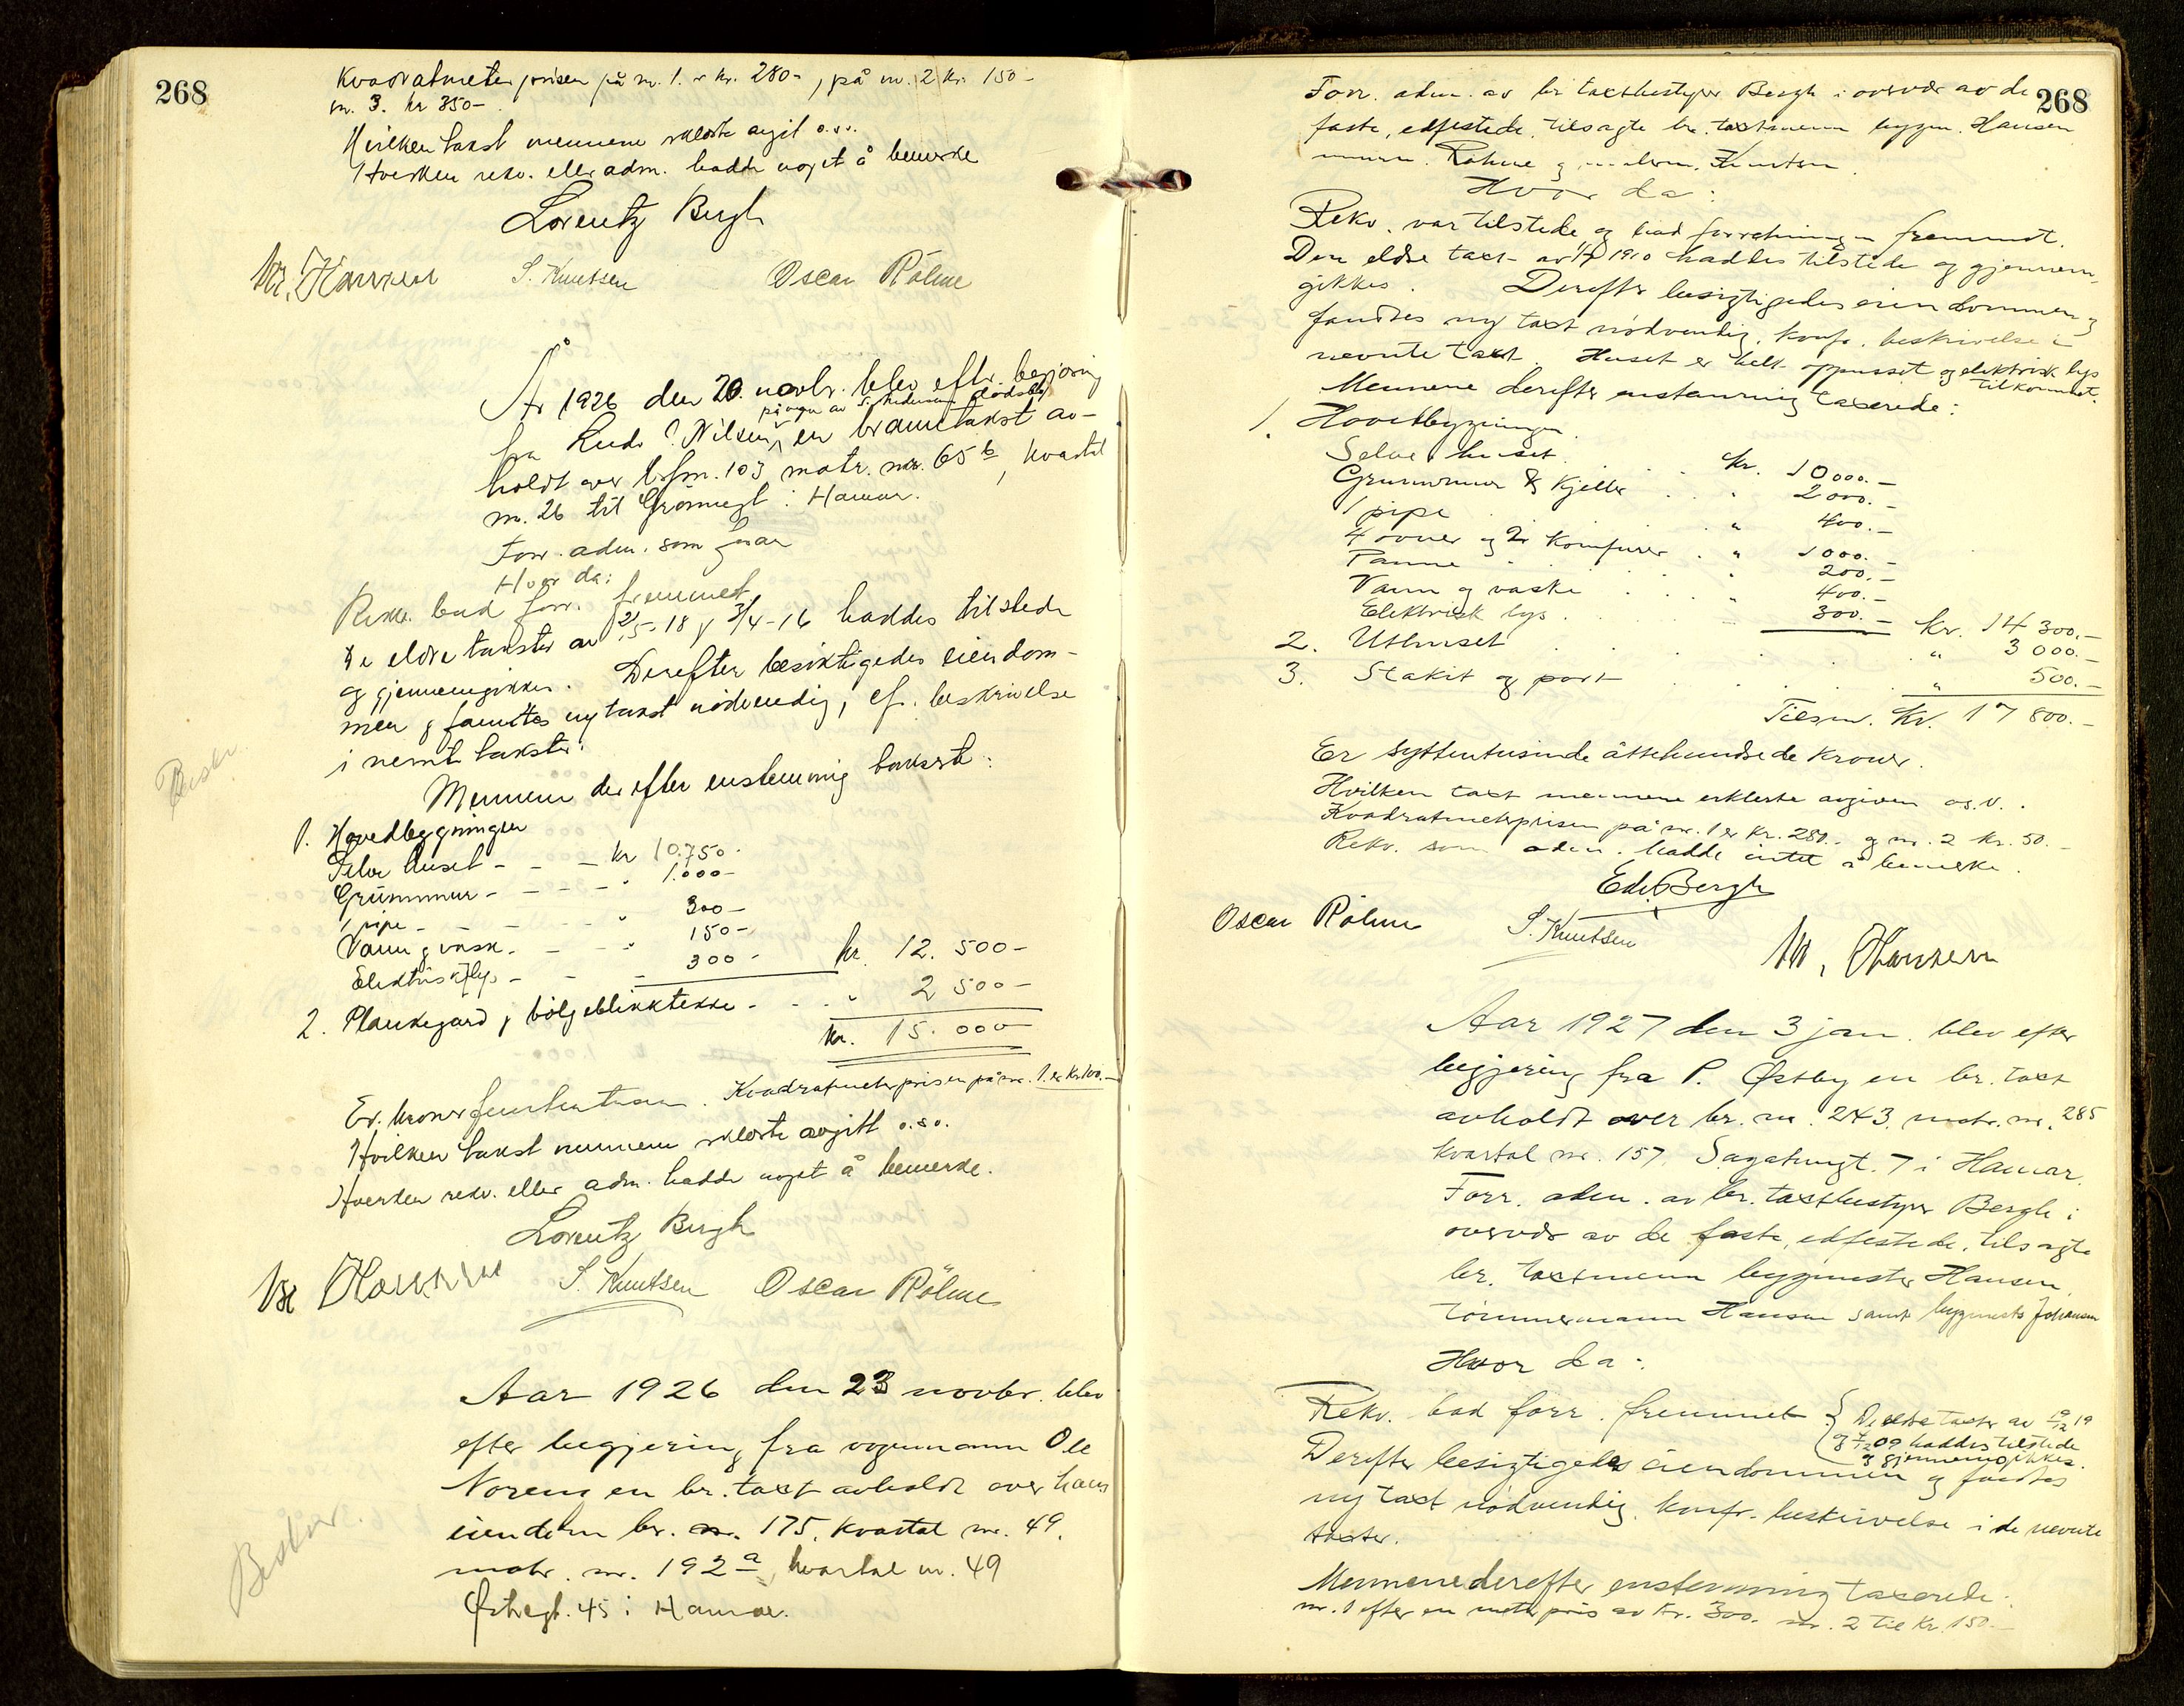 268
Kvadratmeterprisen på nr. 1. er kr. 280-, på nr. 2 kr. 150-
nr. 3. kr 350-
Hvilken takst mennene erklærte avgit o.s.v.
Hverken rekv. eller adm. hadde noget å bemerke
Lorentz Bergh
M. Hansen S. Knutsen Oscar Röhne
År 1926 den 20. novbr. blev efter begjæring
fra Luds Nilsen, på vegne av dødsbo en branntakst av-
holdt over brfm. 103 matr. nr. 65 b, kvartal
nr. 26 til Grönnegt. i Hamar.
Forr. adm. som före
Hvor da:
Rekv. bad forr. fremmet.
De eldre takster av 2/5-18 & 3/4-16 haddes tilstede
og gjennemgikkes. Derefter besiktigedes eiendom-
men & fandtes ny takst nödvendig, cf. beskrivelse
i nevnte takster.
Beskr.
Mennene derefter enstemmig takserte:
1. Hovedbygningen
Selve huset - - - kr 10.750-
Grunnmur - - - - " 1.000-
1 pipe - - - - " 300-
Vann & vask - - - " 150-
Elektrisk lys - - - 300- kr. 12.500-
2. Plankegard & bölgeblikktekke - - - " 2 500-
kr. 15.000-
Er kroner femtentusen. Kvadratmeterprisen på nr. 1. er kr. 100.-
Hvilken takst mennene erklærte avgitt o.s.v.
Hverken rekv. eller adm. hadde noget å bemerke.
Lorentz Bergh
M. Hansen S. Knutsen Oscar Röhne
Aar 1926 den 23 novbr. blev
efter begjering fra vognmann Ole
Noreng en br. taxt avholdt over hans
eiendom br. nr. 175, kvartal nr. 49,
matr. nr. 192 a, kvartal nr. 49
Østregt. 45 i Hamar.
Beskr.
268
Forr. adm. av br. taxtbestyrer Bergh i overvær av de
faste, edfestede, tilsagte br. taxtmenn bygm. Hansen
murm. Röhne og Knutsen.
Hvor da:
Rekv. var tilstede og bad forretningen fremmet.
Den eldre taxt av 1910 haddes tilstede og gjennem-
gikkes. Derefter besigtigedes eiendommen og
fandtes ny taxt nödvendig, konfr. beskrivelse i
nevnte taxt. Huset er helt oppusset og elektrisk lys
tilkommet.
Mennene derefter enstemmig taxerede:
1. Hovedbygningen.
Selve huset . . kr. 10 000.-
Grunnmur & kjeller . . " 2 000.-
1 pipe . . " 400.-
4 ovner og 2 komfurer . " 1 000.-
Panne . . " 200.-
Vann og vaske . . " 400.-
Elektrisk lys . . 300.- kr. 14 300.-
2. Uthuset . . . . " 3 000.-
3. Stakit og port . . . " 500.-
Tilsm. Kr. 17 800.-
Er syttentusinde åttehundrede kroner.
Hvilken taxt mennene erklerte avgiven os.v.
Kvadratmeterprisen på nr. 1 er kr. 280.- og nr. 2 kr. 50.-
Rekv. som adm. hadde intet å bemerke.
Edv. Bergh
Oscar Röhne S. Knutsen M. Hansen
Aar 1927 den 3 jan. blev efter
begjering fra P. Østby en br. taxt
avholdt over br. nr. 243, matr. nr. 285
kvartal nr. 157 Sagatungt. 7 i Hamar.
Forr. adm. av br. taxtbestyrer Bergh i
overvær av de faste, edfestede, tilsagte
br. taxtmenn bygmester Hansen,
tömmermann Hansen samt bygmester Johansen
Hvor da:
Rekv. bad forr. fremmet. De eldre taxter av 19
og 09 haddes tilstede
og gjennemgikkes.
Derefter besigtigedes eiendommen og fandtes
ny taxt nödvendig, konfr. beskrivelse i de nevnte
taxter.
Mennene derefter enstemmig taxerede:
nr. 1 efter en meterpris av kr. 300.- nr. 2 til kr. 150.-